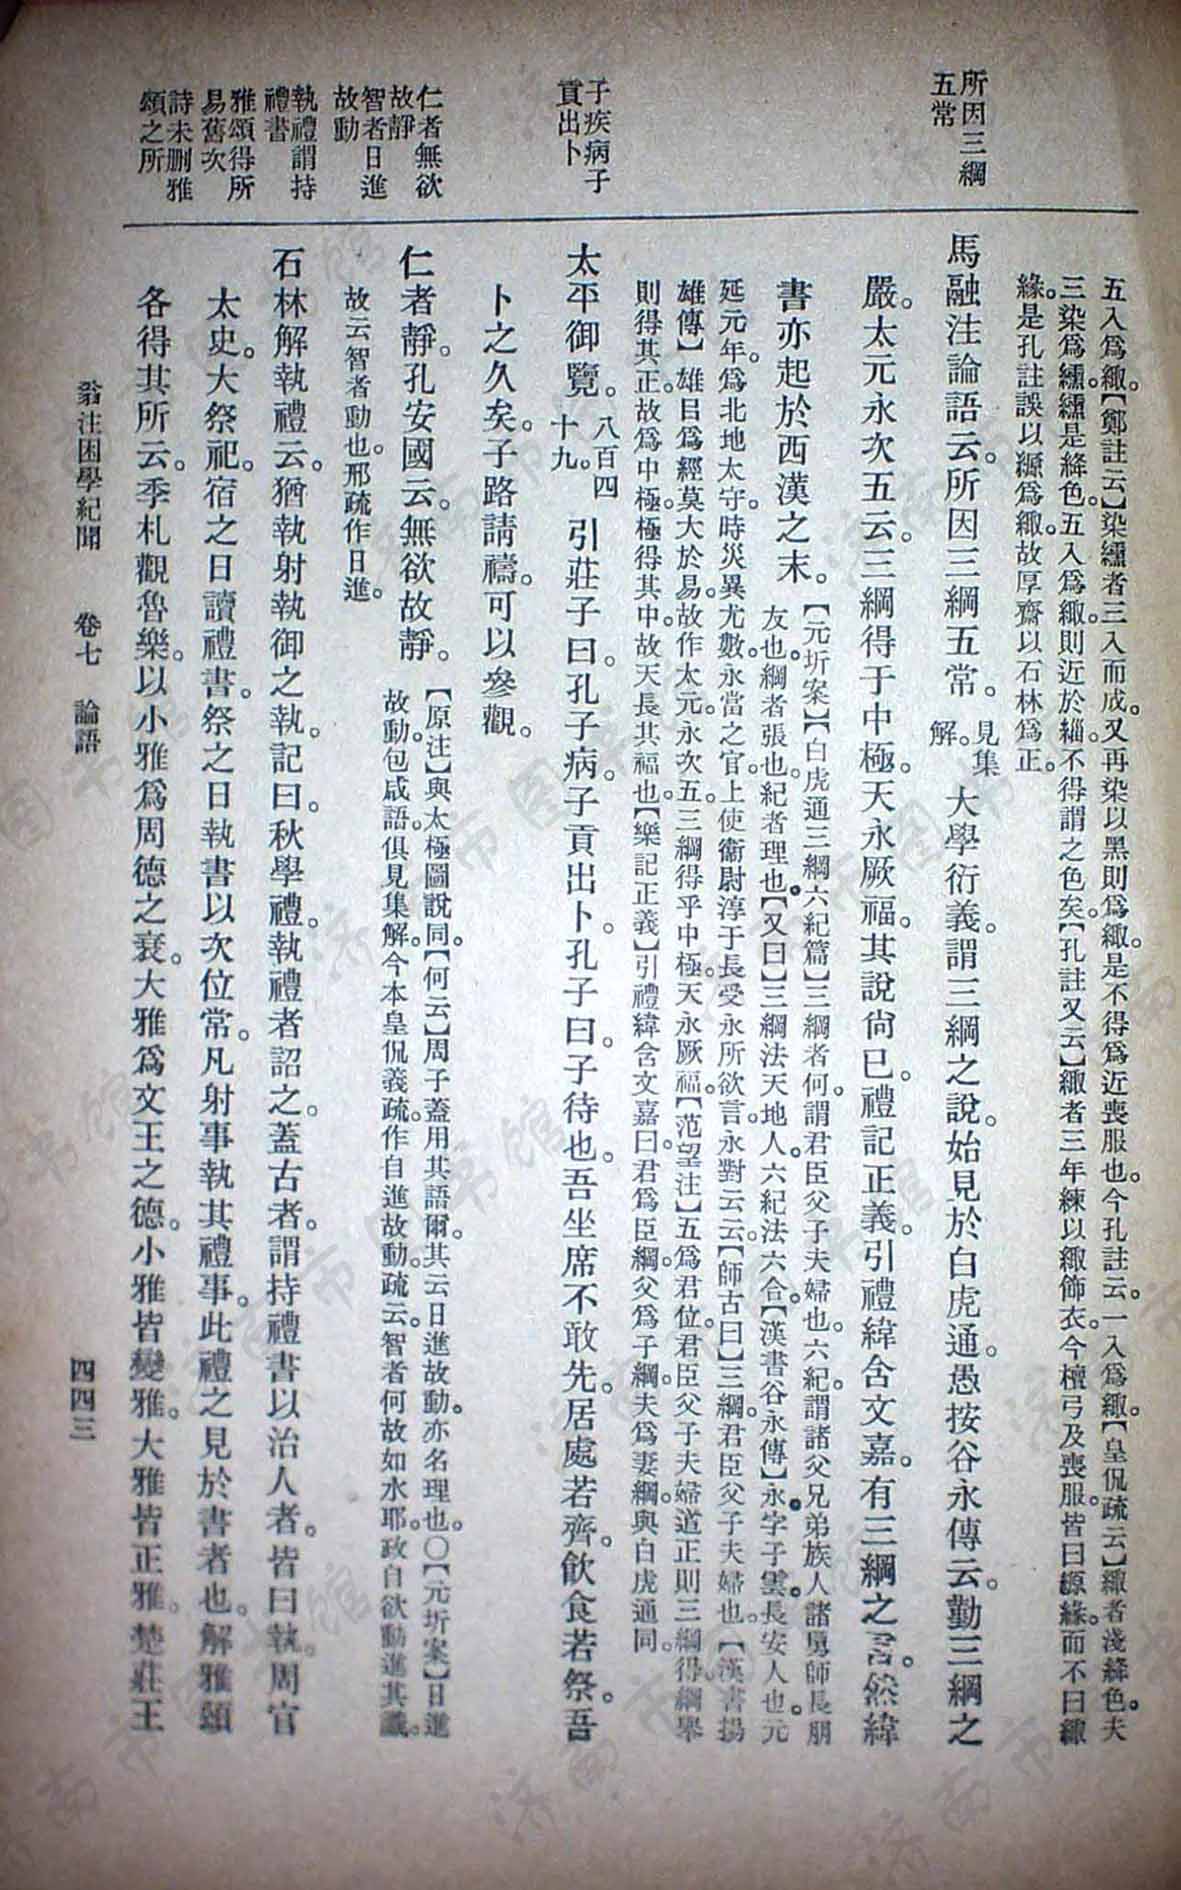 所因三綱
五常
子疾病子
貢出卜
仁者無欲
故靜
智者日進
故動
執禮謂持
禮書
雅頌得所
易舊次
詩未刪雅
頌之所
五入爲緅。【鄭註云】染纁者三入而成。又再染以黑則爲緅。是不得爲近喪服也。今孔註云。一入爲緅。【皇侃疏云】緅者淺絳色。夫
三染爲纁。纁是絳色。五入爲緅。則近於緇。不得謂之色矣。【孔註又云】緅者三年練以緅飾衣。今檀弓及喪服。皆曰縓緣。而不曰緅
緣。是孔註誤以縓爲緅。故厚齋以石林爲正。
馬融注論語云。所因三綱五常。見集解。大學衍義。謂三綱之說。始見於白虎通。愚按谷永傳云。勤三綱之
嚴。太元永次五云。三綱得于中極。天永厥福。其說尙已。禮記正義。引禮緯含文嘉。有三綱之言。然緯
書亦起於西漢之末。【元圻案】【白虎通三綱六紀篇】三綱者何。謂君臣父子夫婦也。六紀謂諸父兄弟族人諸舅師長朋
友也。綱者張也。紀者理也。【又曰】三綱法天地人。六紀法六合。【漢書谷永傳】永字子雲。長安人也。元
延元年。爲北地太守。時災異尤數。永當之官。上使衞尉淳于長受永所欲言。永對云云。【師古曰】三綱。君臣父子夫婦也。【漢書揚
雄傳】雄目爲經莫大於易。故作太元。永次五。三綱得乎中極。天永厥福。【范望注】五爲君位。君臣父子夫婦道正則三綱得。綱舉
則得其正。故爲中極。極得其中。故天長其福也。【樂記正義】引禮緯含文嘉曰。君爲臣綱。父爲子綱。夫爲妻綱。與白虎通同。
太平御覽。八百四十九。引莊子曰。孔子病。子貢出卜。孔子曰。子待也。吾坐席不敢先。居處若齊。飲食若祭。吾
卜之久矣。子路請禱。可以參觀。
仁者靜。孔安國云。無欲故靜。【原注】與太極圖說同。【何云】周子蓋用其語爾。其云日進故動。亦名理也。〇【元圻案】日進
故動。包咸語。俱見集解。今本皇侃義疏。作自進故動。疏云。智者何故如水耶。政自欲動進其識。
故云智者動也。邢疏作日進。
石林解執禮云。猶執射執御之執。記曰。秋學禮。執禮者詔之。蓋古者。謂持禮書以治人者。皆曰執。周官
太史。大祭祀。宿之日讀禮書。祭之日執書以次位常。凡射事執其禮事。此禮之見於書者也。解雅頌
各得其所云。季札觀魯樂。以小雅爲周德之衰。大雅爲文王之德。小雅皆變雅。大雅皆正雅。楚莊王
翁注困學紀聞　卷七　論語　四四三